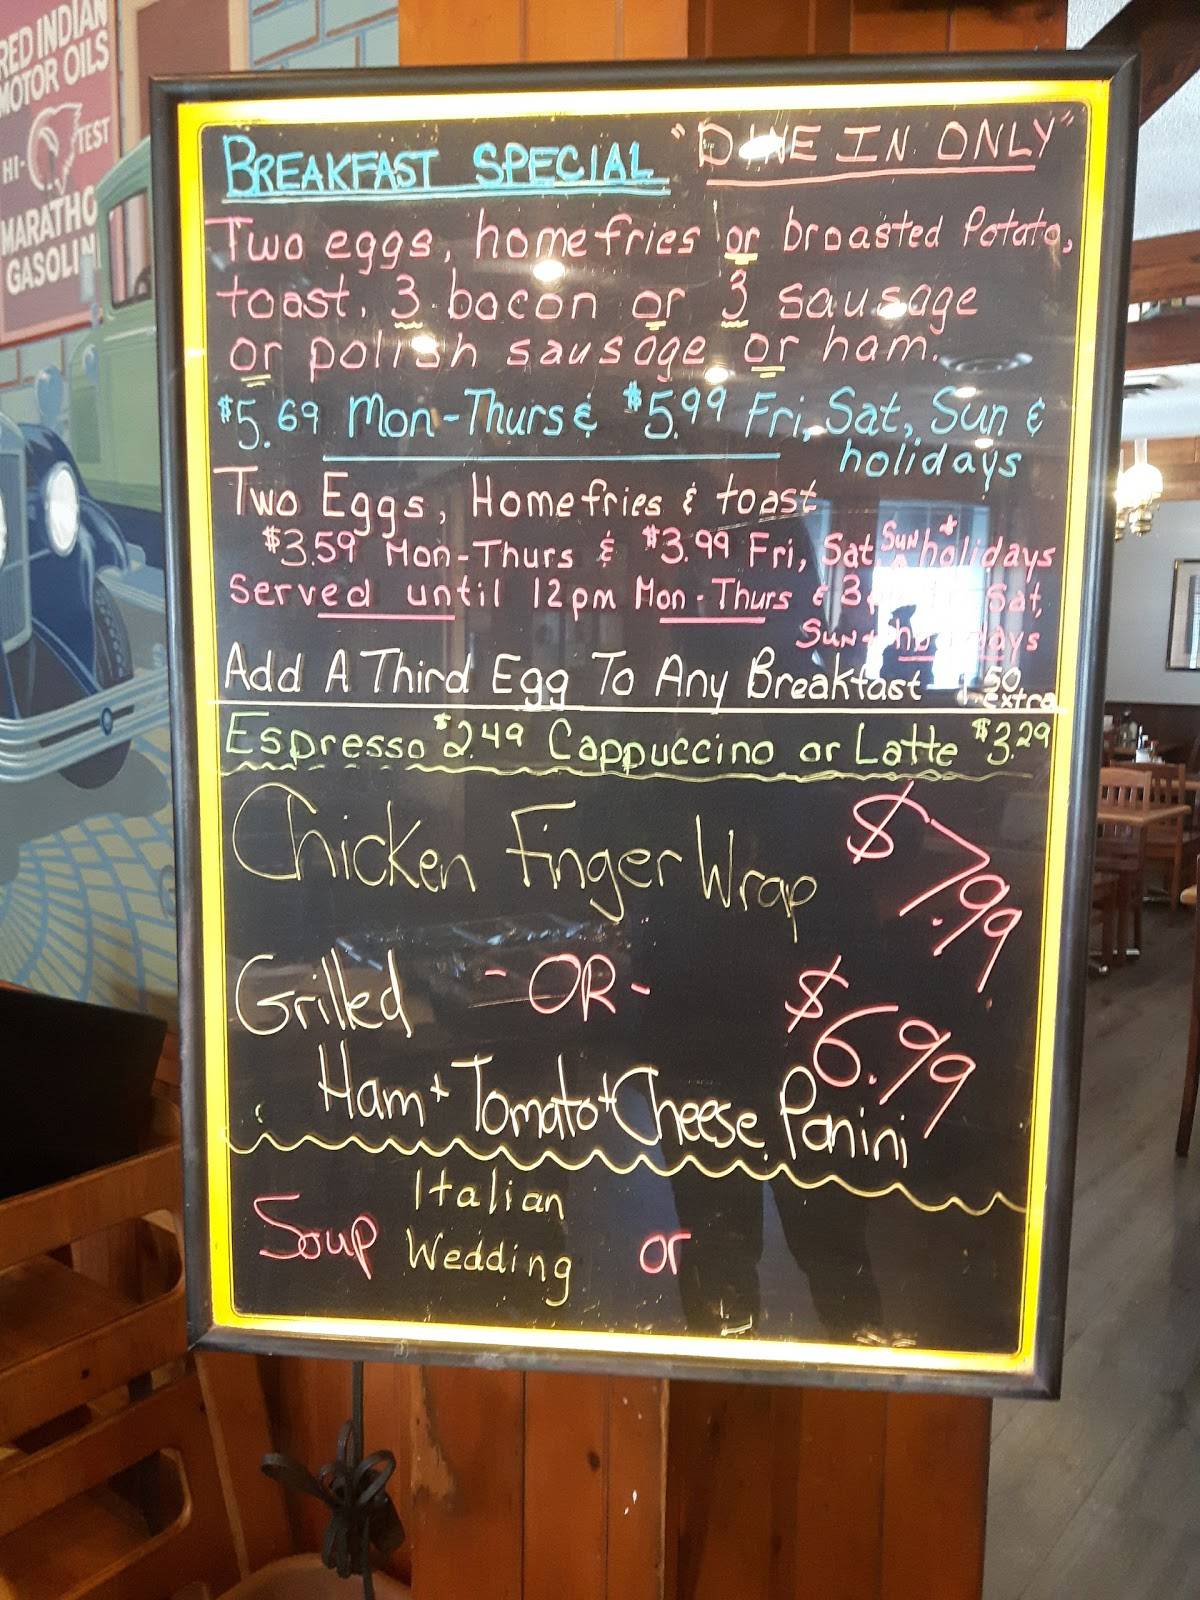 RED INDIAN
MOTOR OILS
HI- TEST
MARATHO
GASOLIN
BREAKFAST SPECIAL "DINE IN ONLY"
Two eggs, homefries or broasted Potato,
toast, 3 bacon or 3 sausage
or polish sausage or ham.
$5.69 Mon-Thurs & $5.99 Fri, Sat, Sun &
holidays
Two Eggs, Homefries & toast
$3.59 Mon-Thurs & $3.99 Fri, Sat, Sun + holidays
Served until 12pm Mon-Thurs & 3 Sat,
Sun + holidays
Add A Third Egg To Any Breakfast 50 extra
Espresso $2.49 Cappuccino or Latte $3.29
Chicken Finger Wrap $7.99
-OR-
Grilled
Ham + Tomato + Cheese Panini $6.99
Soup Italian
Wedding or